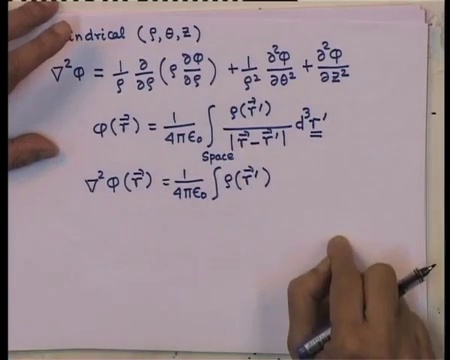 indrical (ρ, θ, z)
∇²φ = 1/ρ ∂/∂ρ (ρ ∂φ/∂ρ) + 1/ρ² ∂²φ/∂θ² + ∂²φ/∂z²
φ(r⃗) = 1/4πε₀ ∫ ρ(r⃗′)/|r⃗-r⃗′| d³r′
Space
∇²φ(r⃗) = 1/4πε₀ ∫ρ(r⃗′)